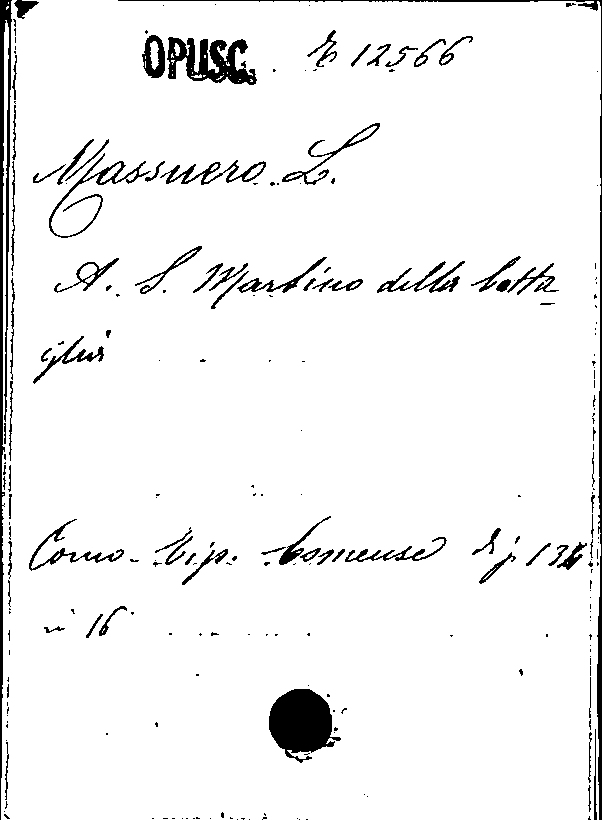 OPUSC. E 12566
Massuero L.
A. S. Martino della batta-
glia
Como - Tip. Comense di p. 134
in 16